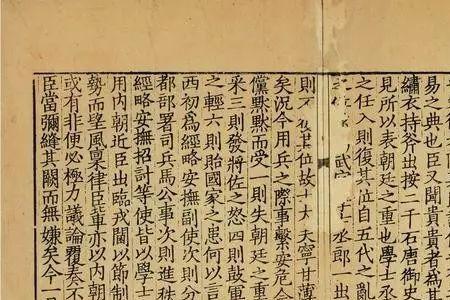 易之典也臣又聞貴者為其
繡衣持斧出按二千石唐御史
見所以表朝廷之重也學士丞
之任入則復其位自五代之亂
武 丞郎一出
則不 位故 大 寧甘薄
矣況今用兵之際事繫安危今
黨默默而受一則失朝廷之重
采三則發將佐之怒四則鼓軍
之輕六則貽國家之患何以言
西初為經略安撫副使次則分
都部署司兵馬公事次則進秩
經略安撫招討等使皆以學士
用内朝近臣出臨戎閫以節制
勢而望風稟律臣輩亦以内朝
或有非便必極力議論覆奏不
臣當彌縫其闕而無嫌矣今一